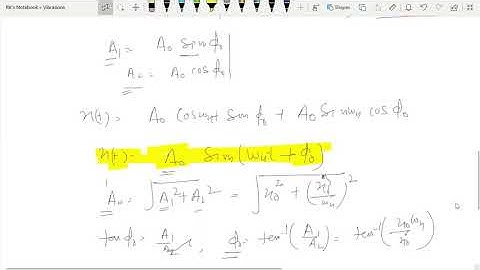 RK's Notebook » Vibrations
Shapes
A₁ = A₀ Sin ϕ₀
A₂ = A₀ cos ϕ₀
x(t) = A₀ cos ωₙt sin ϕ₀ + A₀ Sin ωₙt cos ϕ₀
x(t) = A₀ Sin(ωₙt + ϕ₀)
A₀ = √(A₁² + A₂²) = √(x₀² + (ẋ₀/ωₙ)²)
tan ϕ₀ = A₁/A₂, ϕ₀ = tan⁻¹(A₁/A₂) = tan⁻¹(x₀ωₙ/ẋ₀)